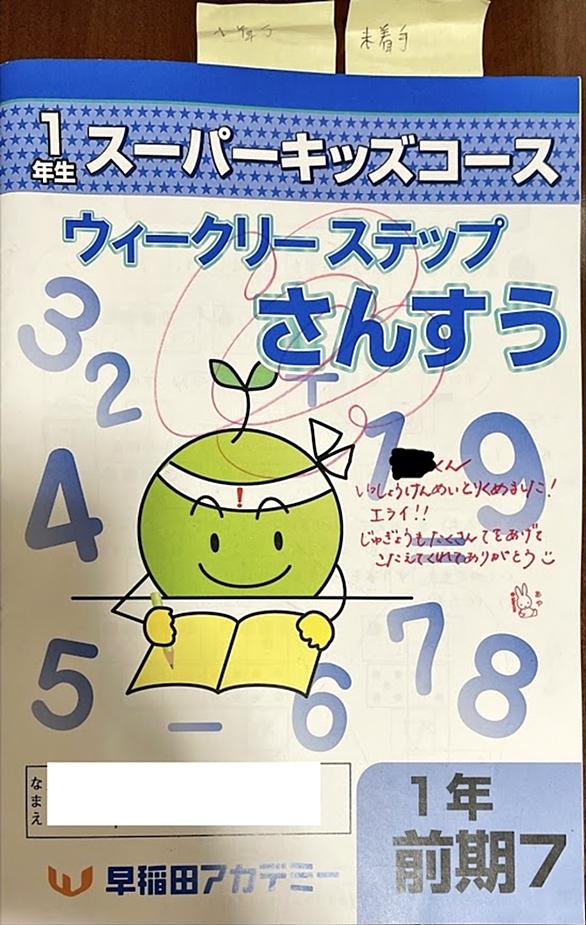 未着手
1年生 スーパーキッズコース
ウィークリー ステップ
さんすう
3
2
+
1
9
4
!
くん
いっしょうけんめいとりくめました!
エライ!!
じゅぎょうもたくさんてをあげて
こたえてくれてありがとう
あや
5
6
7
8
-
なまえ
1年
前期7
早稲田アカデミー